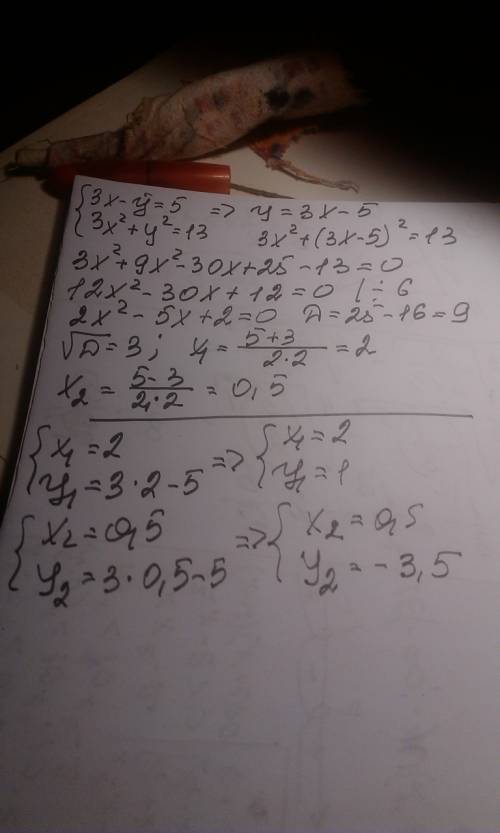 {3x-y=5 => y=3x-5
{3x²+y²=13 3x²+(3x-5)²=13
3x²+9x²-30x+25-13=0
12x²-30x+12=0 | ÷6
2x²-5x+2=0 D=25-16=9
√D=3; x₁=(5+3)/(2·2)=2
x₂=(5-3)/(2·2)=0,5
{x₁=2 => {x₁=2
{y₁=3·2-5 {y₁=1
{x₂=0,5 => {x₂=0,5
{y₂=3·0,5-5 {y₂=-3,5